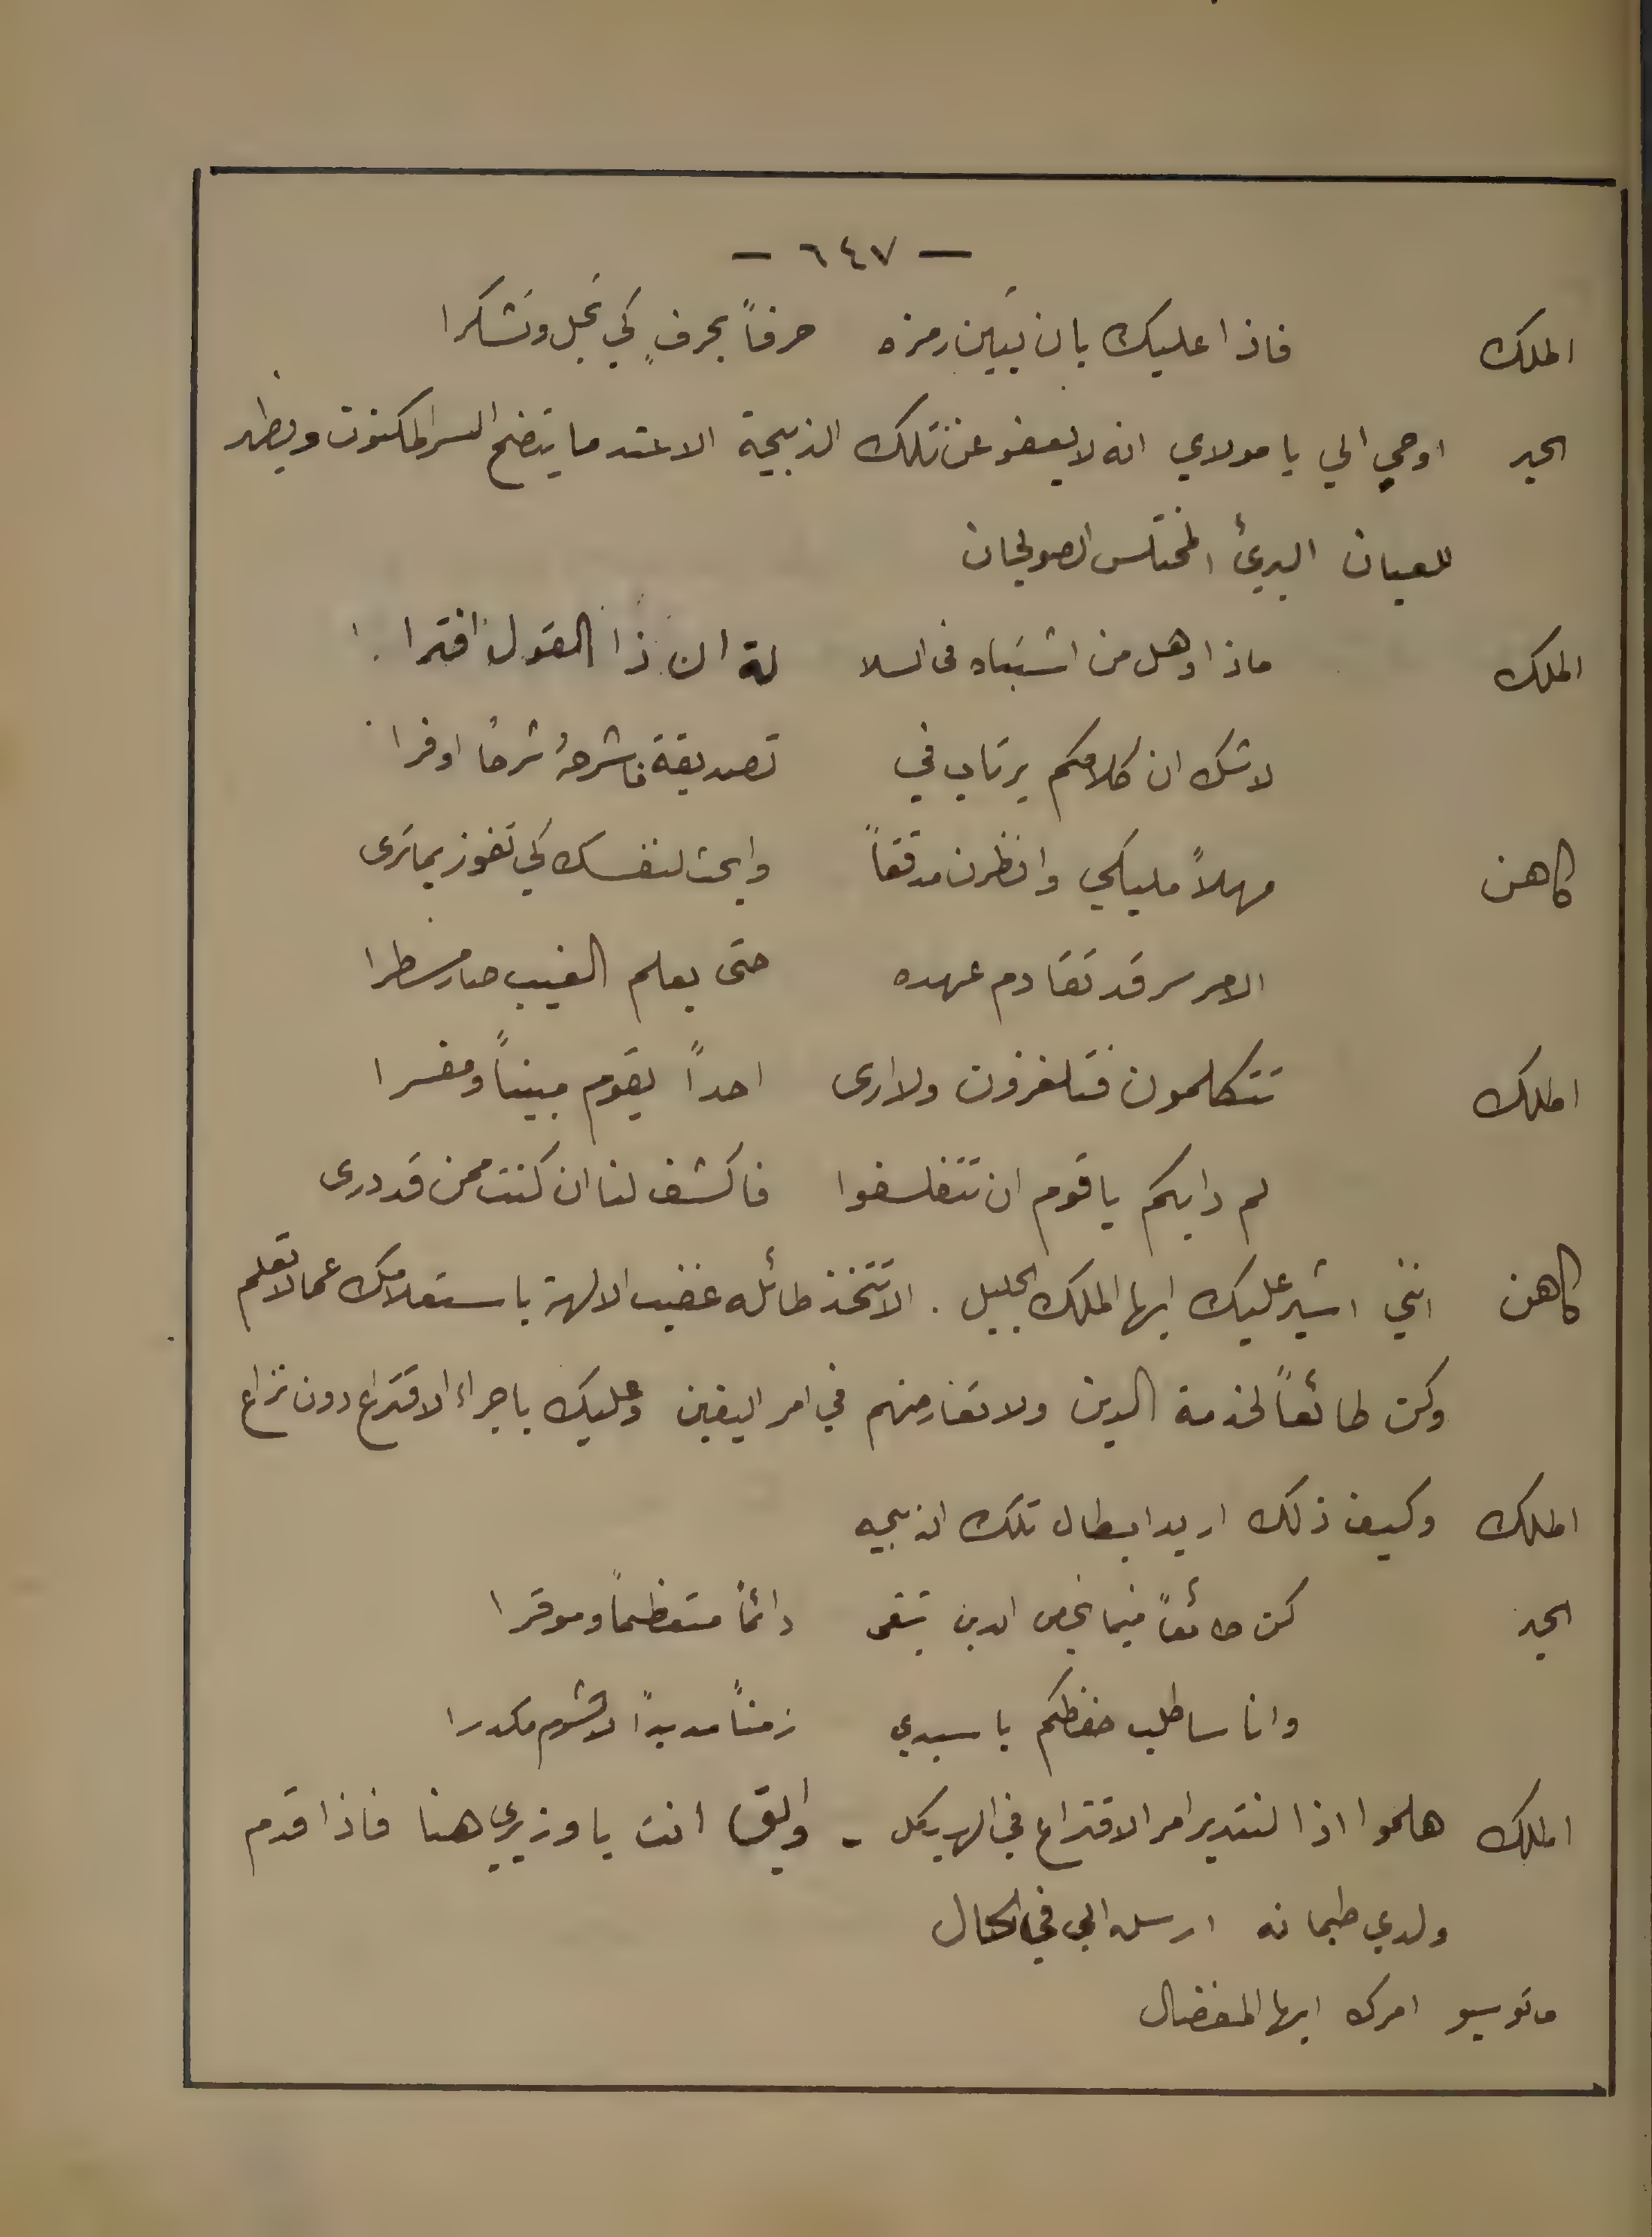 — ٦٤٧ —
الملك فاذا عليك بان تبين رمزه حرفاً بحرفٍ كي نجل ونشكرا
الحبر اوحي الي يا مولاي انه لا يعفو عن تلك الذبيحة الا عند ما يتضح السر المكنون ويظهر
للعيان البرئ المختلس الصولجان
الملك ماذا وهل من اشتباه فى السلا لة ان ذا القول افترا
لا شك ان كلامكم يرتاب في تصديقة فاشرحهُ شرحاً اوفرا
كاهن مهلاً مليكي وانظرن مدققاً وابحث لنفسك كي تفوز بما ترى
الامر سر قد تقادم عهده حتى بعلم الغيب صار مسطرا
الملك تتكلمون فتلغزون ولا ارى احداً يقوم مبيناً ومفسرا
لم دابكم يا قوم ان تتفلسفوا فاكشف لنا ان كنت ممن قد درى
كاهن انني اشير عليك ايها الملك الجليل . الا تتخذ طائله غضب الالهة باستعلامك عما لا تعلم
وكن طائعاً لخدمة الدين ولا تعارضهم في امر اليقين وعليك باجراء الاقتراع دون نزاع
الملك وكيف ذلك اريد ابطال تلك الذبيحه
الحبر كن طائعاً فيما يخص الدين تبقى دائماً متعظماً وموقرا
وانا ساطلب حفظكم يا سيدي زمناً مديداً لا مكدرا
الملك هلموا اذا لنتدبر امر الاقتراع في الهيكل - وابق انت يا وزيري هنا فاذا قدم
ولدي طيمانه ارسله الي في الحال
ماتوسيو امرك ايها المفضال